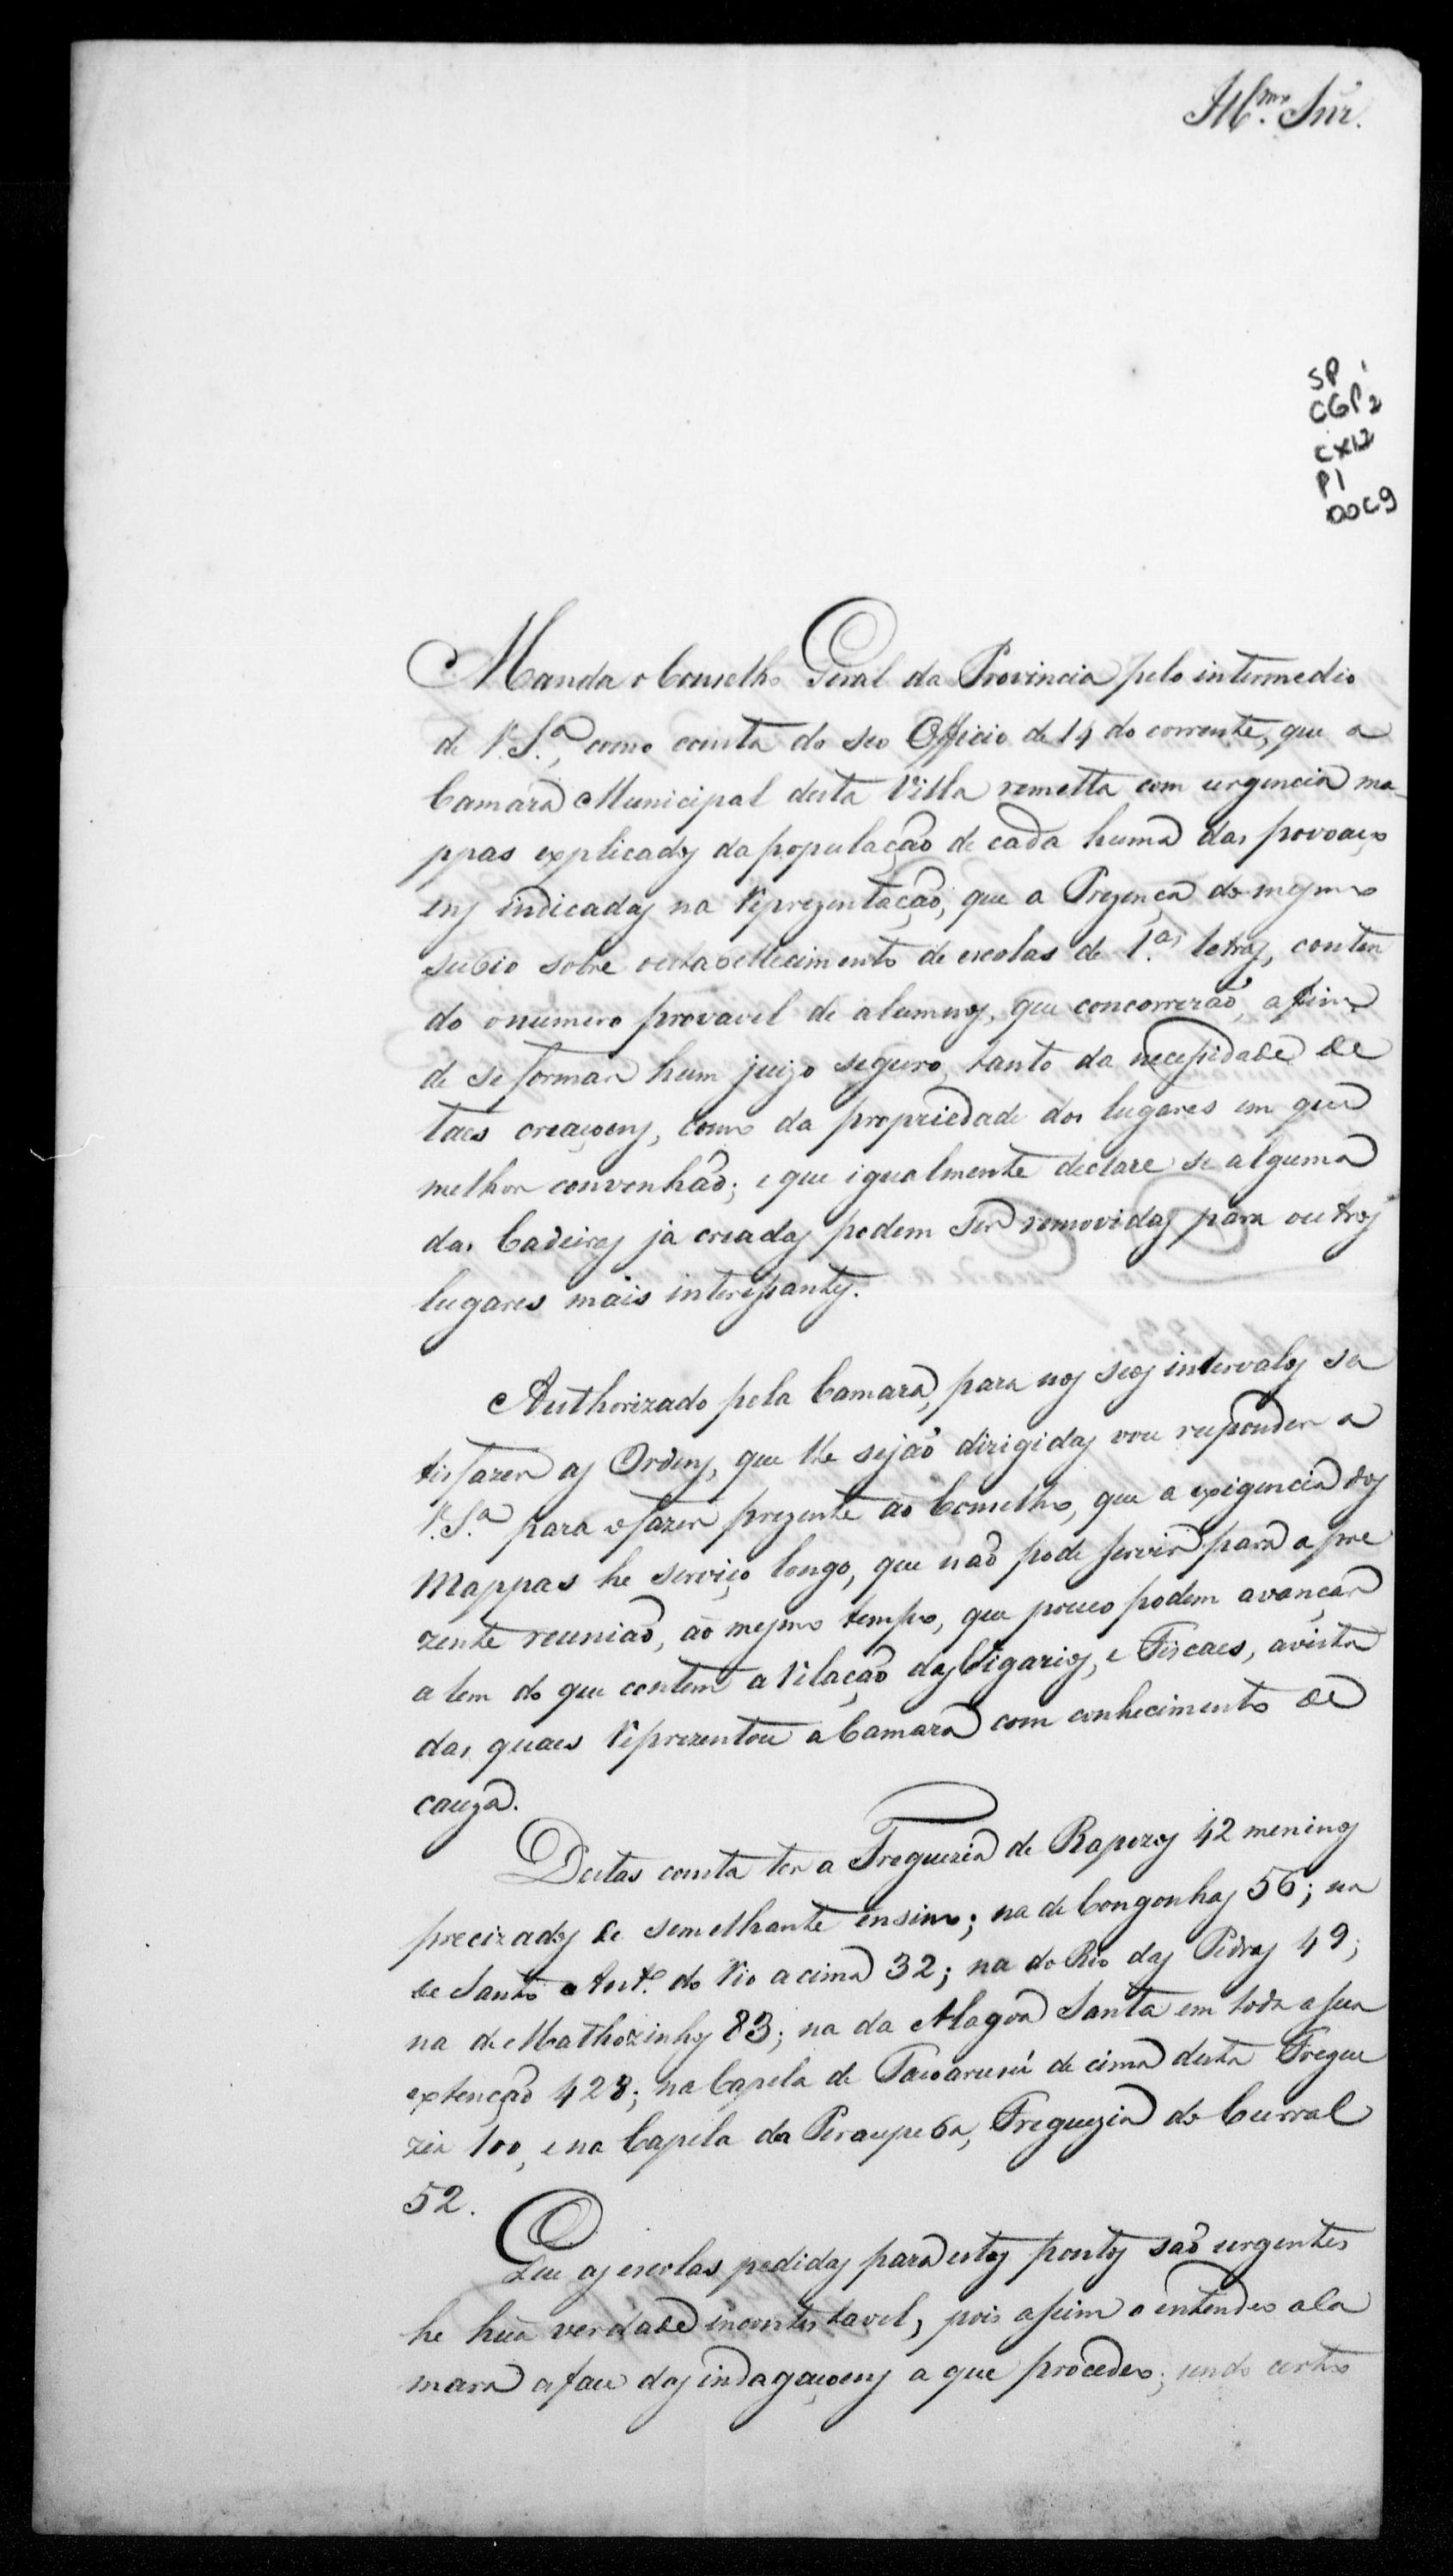 Ill.mo Snr.
SP
CGP2
CX12
P1
DOC9
Manda o Conselho Geral da Provincia pelo intermedio
de V. S.a, como consta do seo Officio de 14 do corrente, que a
Camara Municipal desta Villa remetta com urgencia ma-
ppas explicados da população de cada huma das povoaço
ens indicadas na Reprezentação, que a Prezença do mesmo
subio sobre o estabellecimento de escolas de 1.as letras, conten
do o numero provavel de alumnos, que concorrerão, a fim
de se formar hum juizo seguro, tanto da necessidade de
taes creaçoens, como da propriedade dos lugares em que
melhor convenhão; e que igualmente declare se alguma
das Cadeiras já creadas podem ser removidas para outros
lugares mais interessantes.
Authorizado pela Camara, para nos seos intervalos sa
tisfazer as Ordens, que lhe sejão dirigidas vou responder a
V. S.a para o fazer prezente ao Conselho, que a exigencia dos
Mappas he serviço longo, que não pode servir para a pre
zente reunião, ao mesmo tempo, que pouco podem avançar
alem do que contem a Relação dos Vigarios, e Fiscaes, avista
das quaes Reprezentou a Camara com conhecimento de
cauza.
Destas consta ter a Freguezia de Rapozos 42 meninos
precizados de semelhante ensino; na de Congonhas 56; na
de Santo Ant.o do Rio acima 32; na do Rio das Pedras 49;
na de Mathozinhos 83; na da Alagoa Santa em toda a sua
extenção 428; na Capela de de cima desta Fregue
zia 100, e na Capela da Peraupeba, Freguezia do Curral
52.
Que as escolas pedidas para estes pontos são urgentes
he hua verdade incontestavel, pois assim o entendeo a Ca
mara a face das indagaçoens a que procedeo; sendo certo